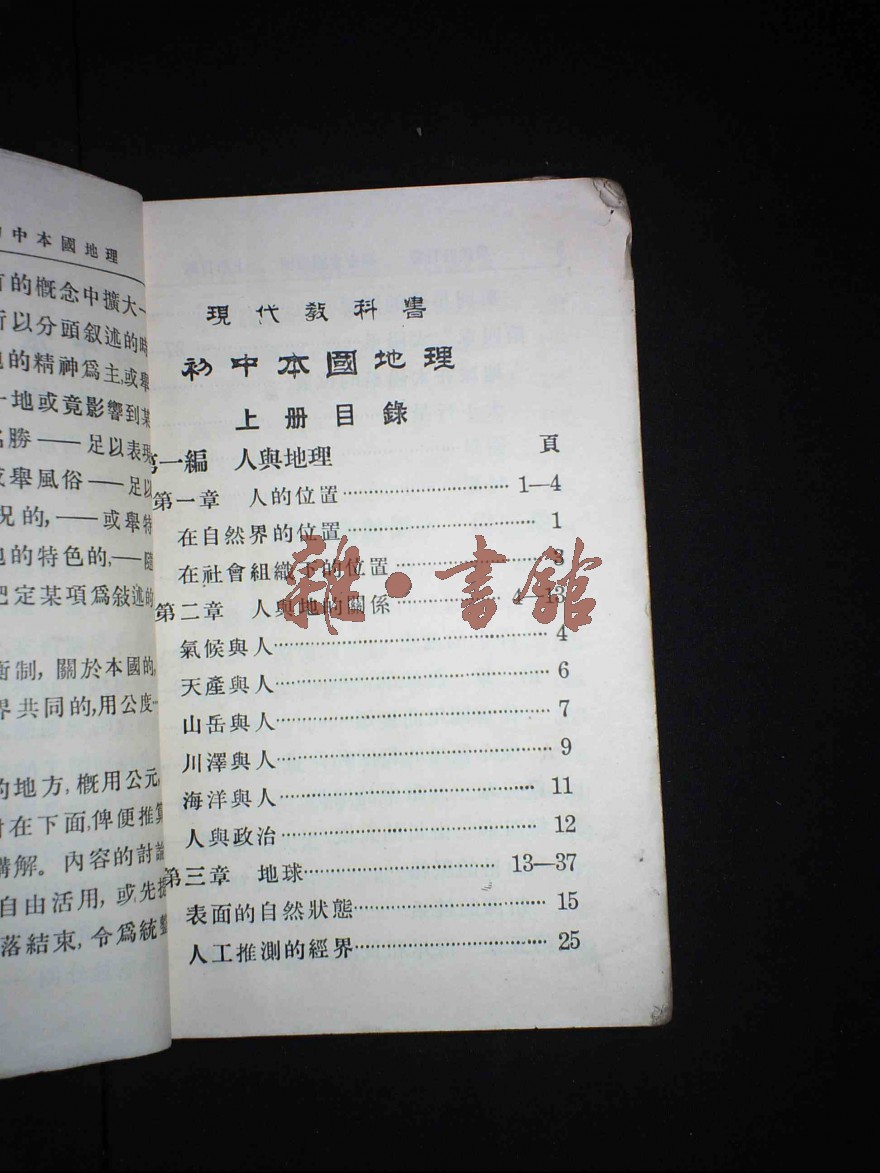 中本國地理
的概念中擴大一
所以分頭叙述的時
的精神爲主,或舉
地或竟影響到某
勝——足以表現
舉風俗——足以
况的,——或舉特
的特色的,——隨
把定某項爲敍述的
衡制,關於本國的,
界共同的,用公度
的地方,概用公元,
在下面,俾便推算
講解。內容的討論
自由活用,或先提
落結束,令爲統整
現代教科書
初中本國地理
上册目錄
頁
第一編 人與地理
第一章 人的位置……1—4
在自然界的位置……1
在社會組織下的位置……3
第二章 人與地的關係……4—13
氣候與人……4
天產與人……6
山岳與人……7
川澤與人……9
海洋與人……11
人與政治……12
第三章 地球……13—37
表面的自然狀態……15
人工推測的經界……25
雜·書館